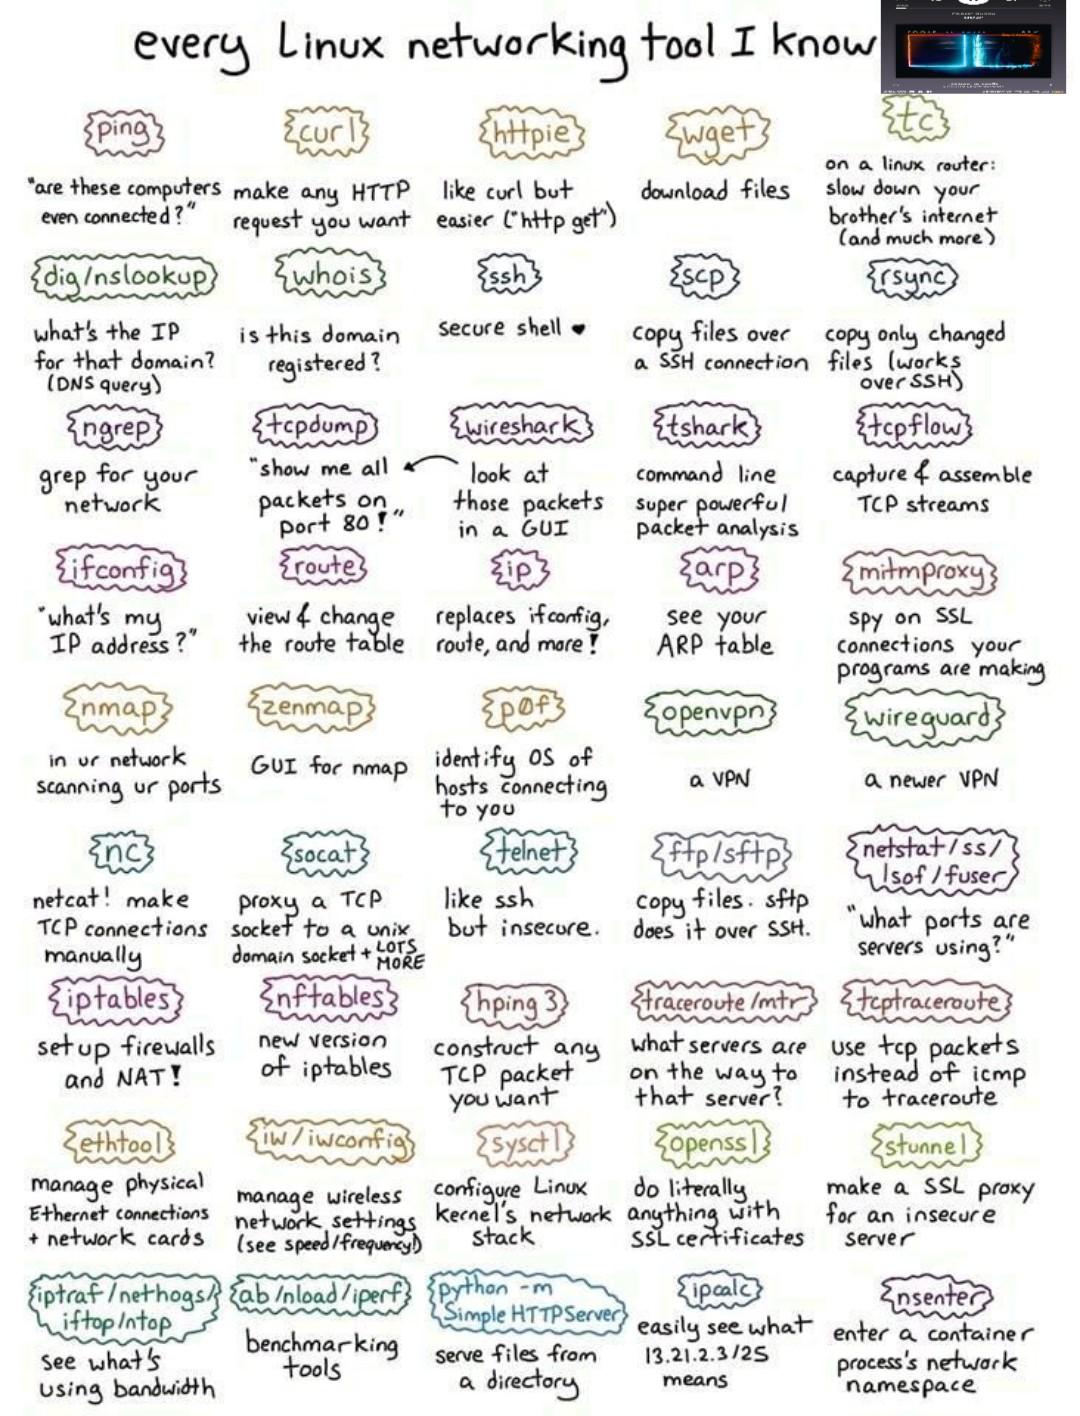 every Linux networking tool I know
ping
"are these computers
even connected?"
curl
make any HTTP
request you want
httpie
like curl but
easier ("http get")
wget
download files
tc
on a linux router:
slow down your
brother's internet
(and much more)
dig/nslookup
what's the IP
for that domain?
(DNS query)
whois
is this domain
registered?
ssh
secure shell ♥
scp
copy files over
a SSH connection
rsync
copy only changed
files (works
over SSH)
ngrep
grep for your
network
tcpdump
"show me all
packets on
port 80!"
wireshark
look at
those packets
in a GUI
tshark
command line
super powerful
packet analysis
tcpflow
capture & assemble
TCP streams
ifconfig
"what's my
IP address?"
route
view & change
the route table
ip
replaces ifconfig,
route, and more!
arp
see your
ARP table
mitmproxy
spy on SSL
connections your
programs are making
nmap
in ur network
scanning ur ports
zenmap
GUI for nmap
p0f
identify OS of
hosts connecting
to you
openvpn
a VPN
wireguard
a newer VPN
nc
netcat! make
TCP connections
manually
socat
proxy a TCP
socket to a unix
domain socket + LOTS
MORE
telnet
like ssh
but insecure.
ftp/sftp
copy files. sftp
does it over SSH.
netstat/ss/
lsof/fuser
"what ports are
servers using?"
iptables
set up firewalls
and NAT!
nftables
new version
of iptables
hping3
construct any
TCP packet
you want
traceroute/mtr
what servers are
on the way to
that server?
tcptraceroute
use tcp packets
instead of icmp
to traceroute
ethtool
manage physical
Ethernet connections
+ network cards
iw/iwconfig
manage wireless
network settings
(see speed/frequency!)
sysctl
configure Linux
kernel's network
stack
openssl
do literally
anything with
SSL certificates
stunnel
make a SSL proxy
for an insecure
server
iptraf/nethogs/
iftop/ntop
see what's
using bandwidth
ab/nload/iperf
benchmarking
tools
python -m
SimpleHTTPServer
serve files from
a directory
ipcalc
easily see what
13.21.2.3/25
means
nsenter
enter a container
process's network
namespace